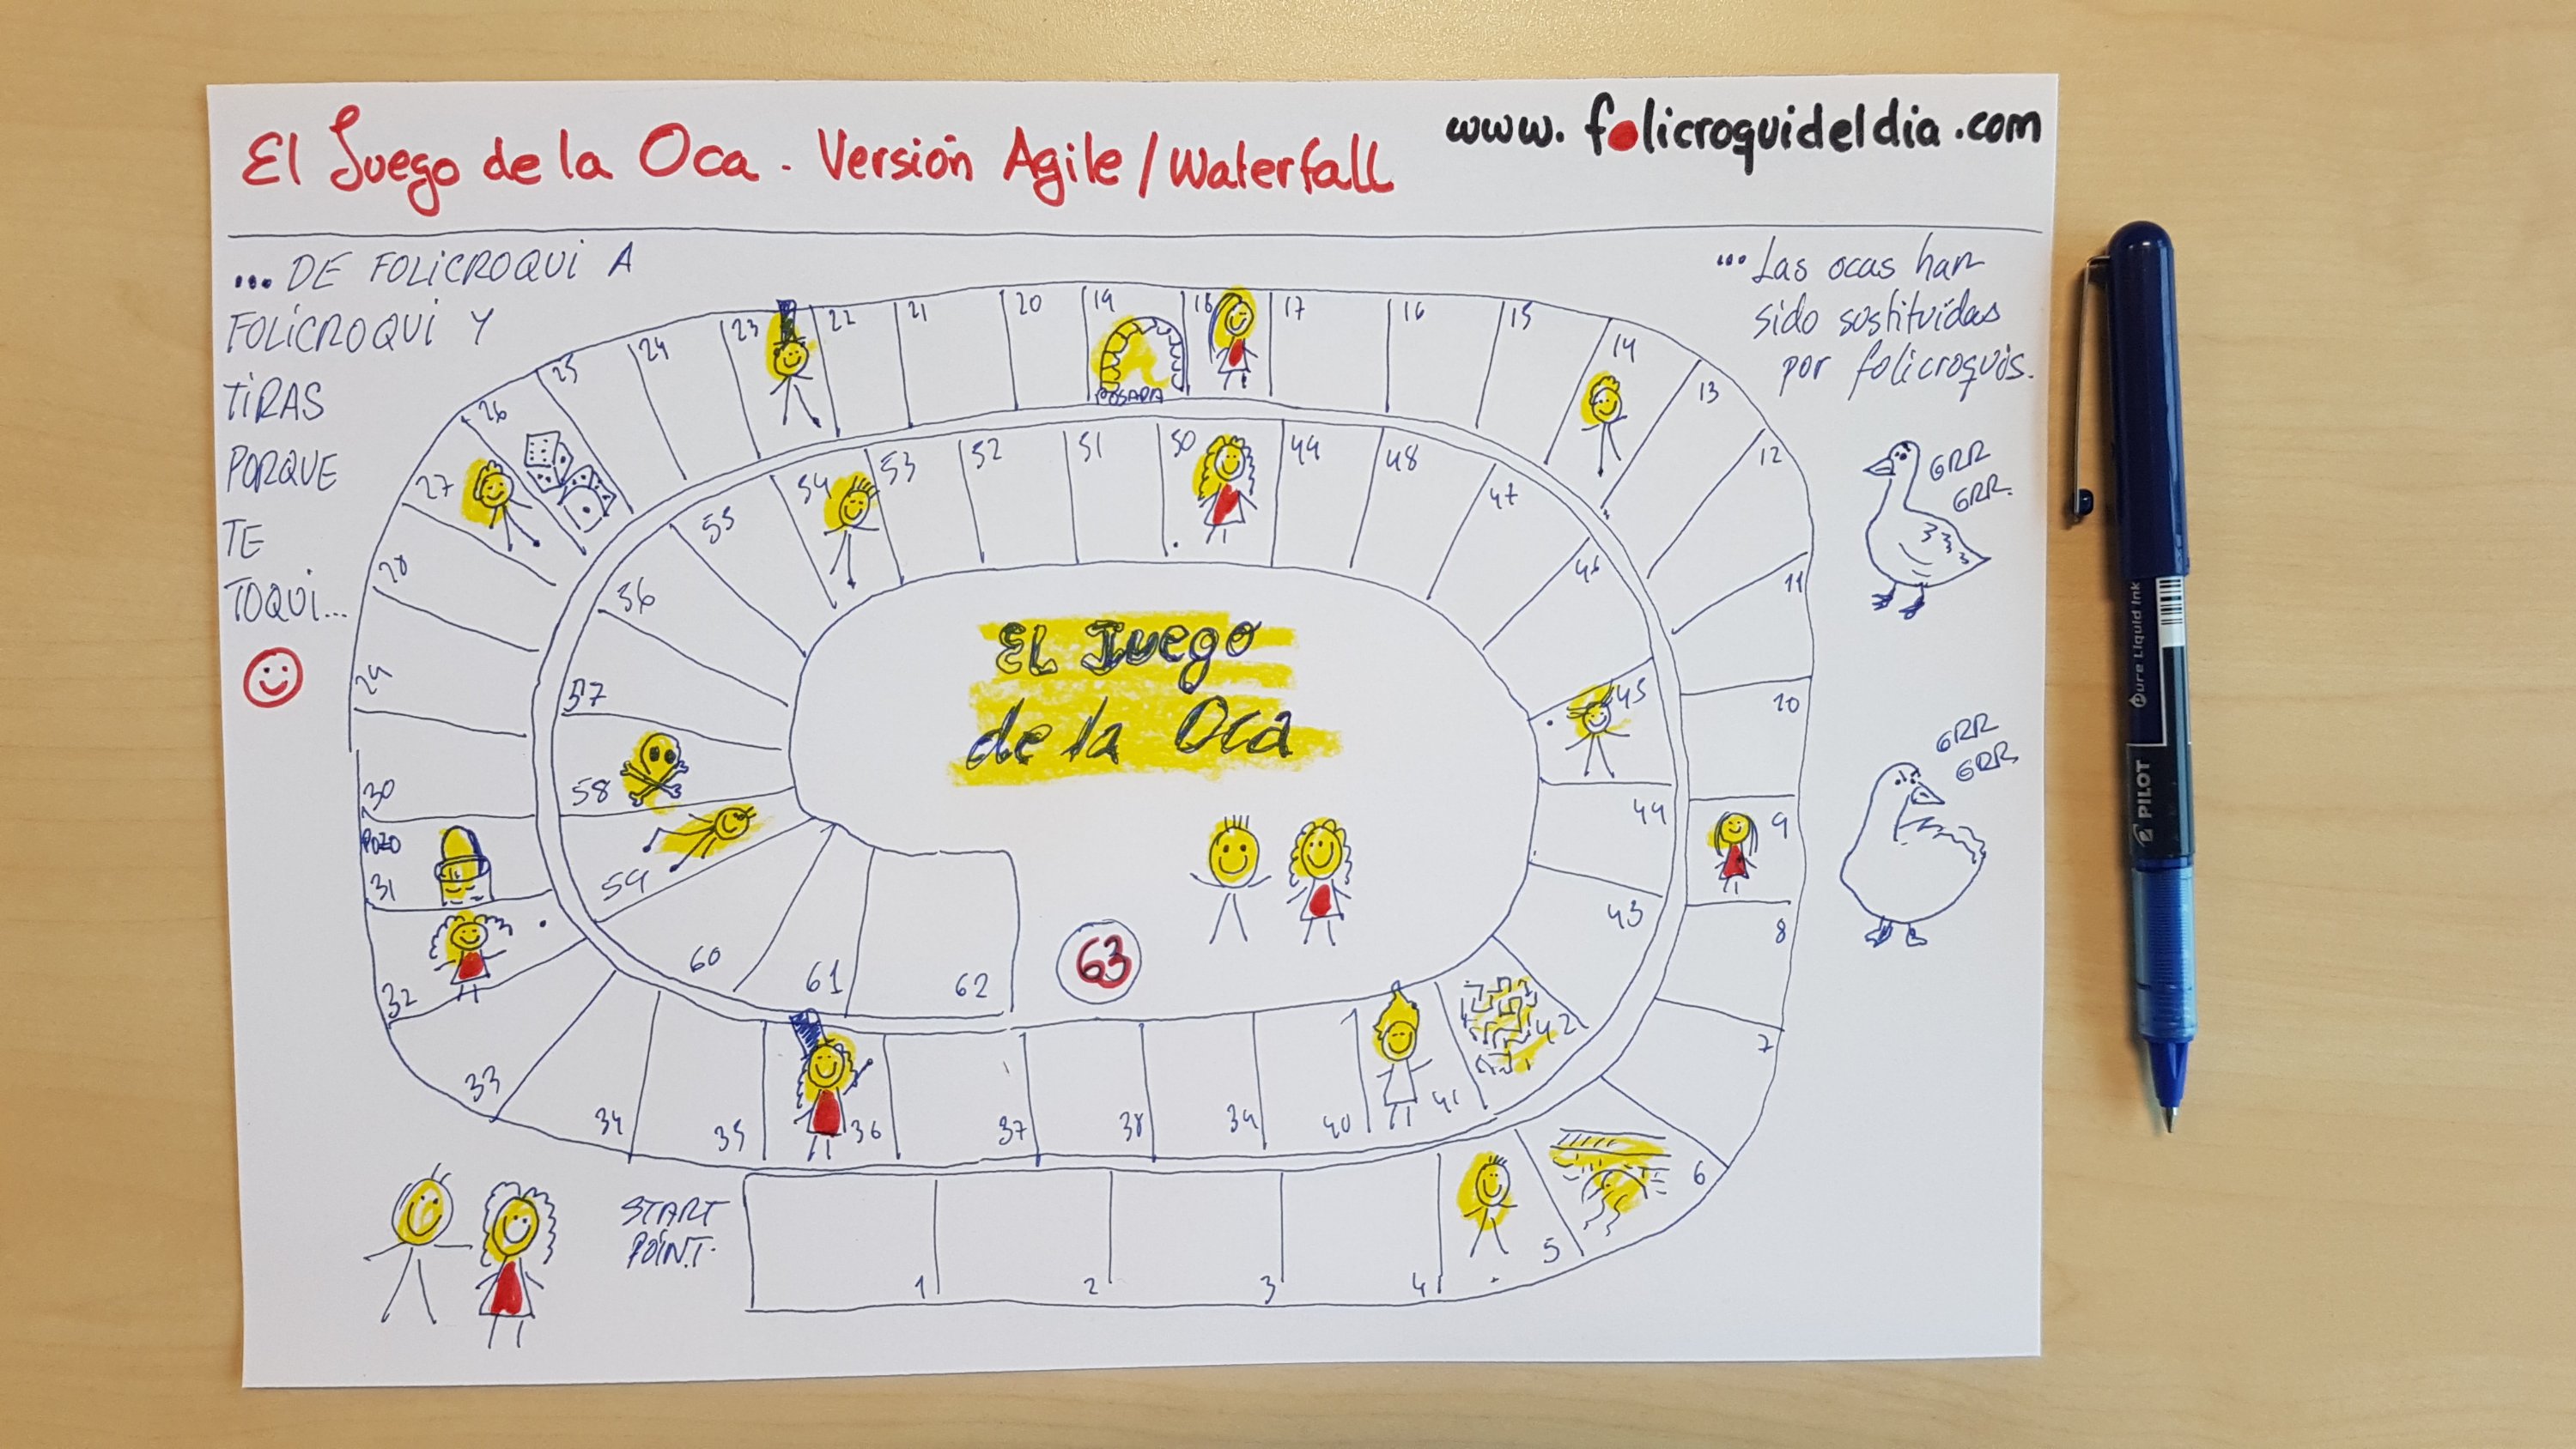 El Juego de la Oca - Versión Agile/Waterfall
www.folicroquideldia.com
... DE FOLICROQUI A
FOLICROQUI Y
TIRAS
PORQUE
TE
TOQUI...
... Las ocas han
sido sustituídas
por folicroquis.
GRR
GRR.
GRR
GRR
EL Juego
de la Oca
63
START
POINT.
1
2
3
4
5
6
7
8
9
10
11
12
13
14
15
16
17
18
19
POSADA
20
21
22
23
24
25
26
27
28
29
30
POZO
31
32
33
34
35
36
37
38
39
40
41
42
43
44
45
46
47
48
49
50
51
52
53
54
55
56
57
58
59
60
61
62
PILOT
Pure Liquid Ink